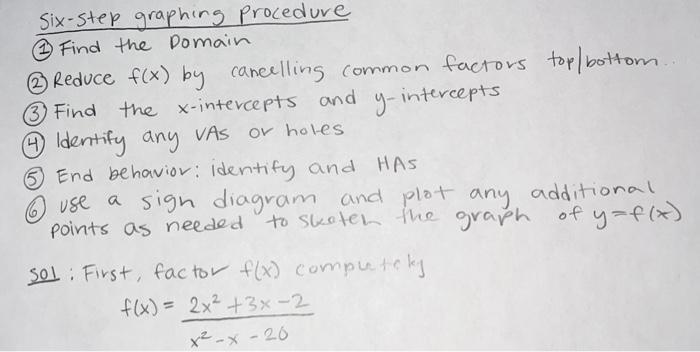 Six-step graphing procedure
① Find the Domain
② Reduce f(x) by cancelling common factors top/bottom..
③ Find the x-intercepts and y-intercepts
④ Identify any VAs or holes
⑤ End behavior: identify and HAs
⑥ use a sign diagram and plot any additional
points as needed to sketch the graph of y=f(x)
Sol: First, factor f(x) completely
f(x) = 2x² + 3x - 2
x² - x - 20